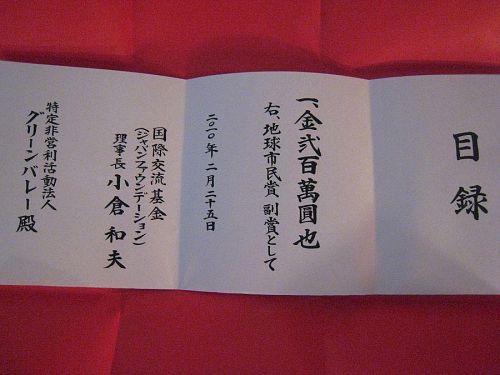 目録
一、金弐百萬圓也
右、地球市民賞 副賞として
二〇一〇年 二月二十五日
国際交流基金
(ジャパンファウンデーション)
理事長 小倉和夫
特定非営利活動法人
グリーンバレー殿